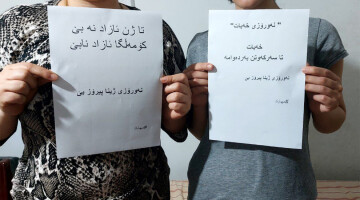 تا ژن ئازاد نە بێ
کۆمەڵگا ئازاد نابێ
نەورۆزی ژینا پیرۆز بێ
"نەورۆزی خەبات"
خەبات
تا سەرکەوتن بەردەوامە
نەورۆزی ژینا پیرۆز بێ